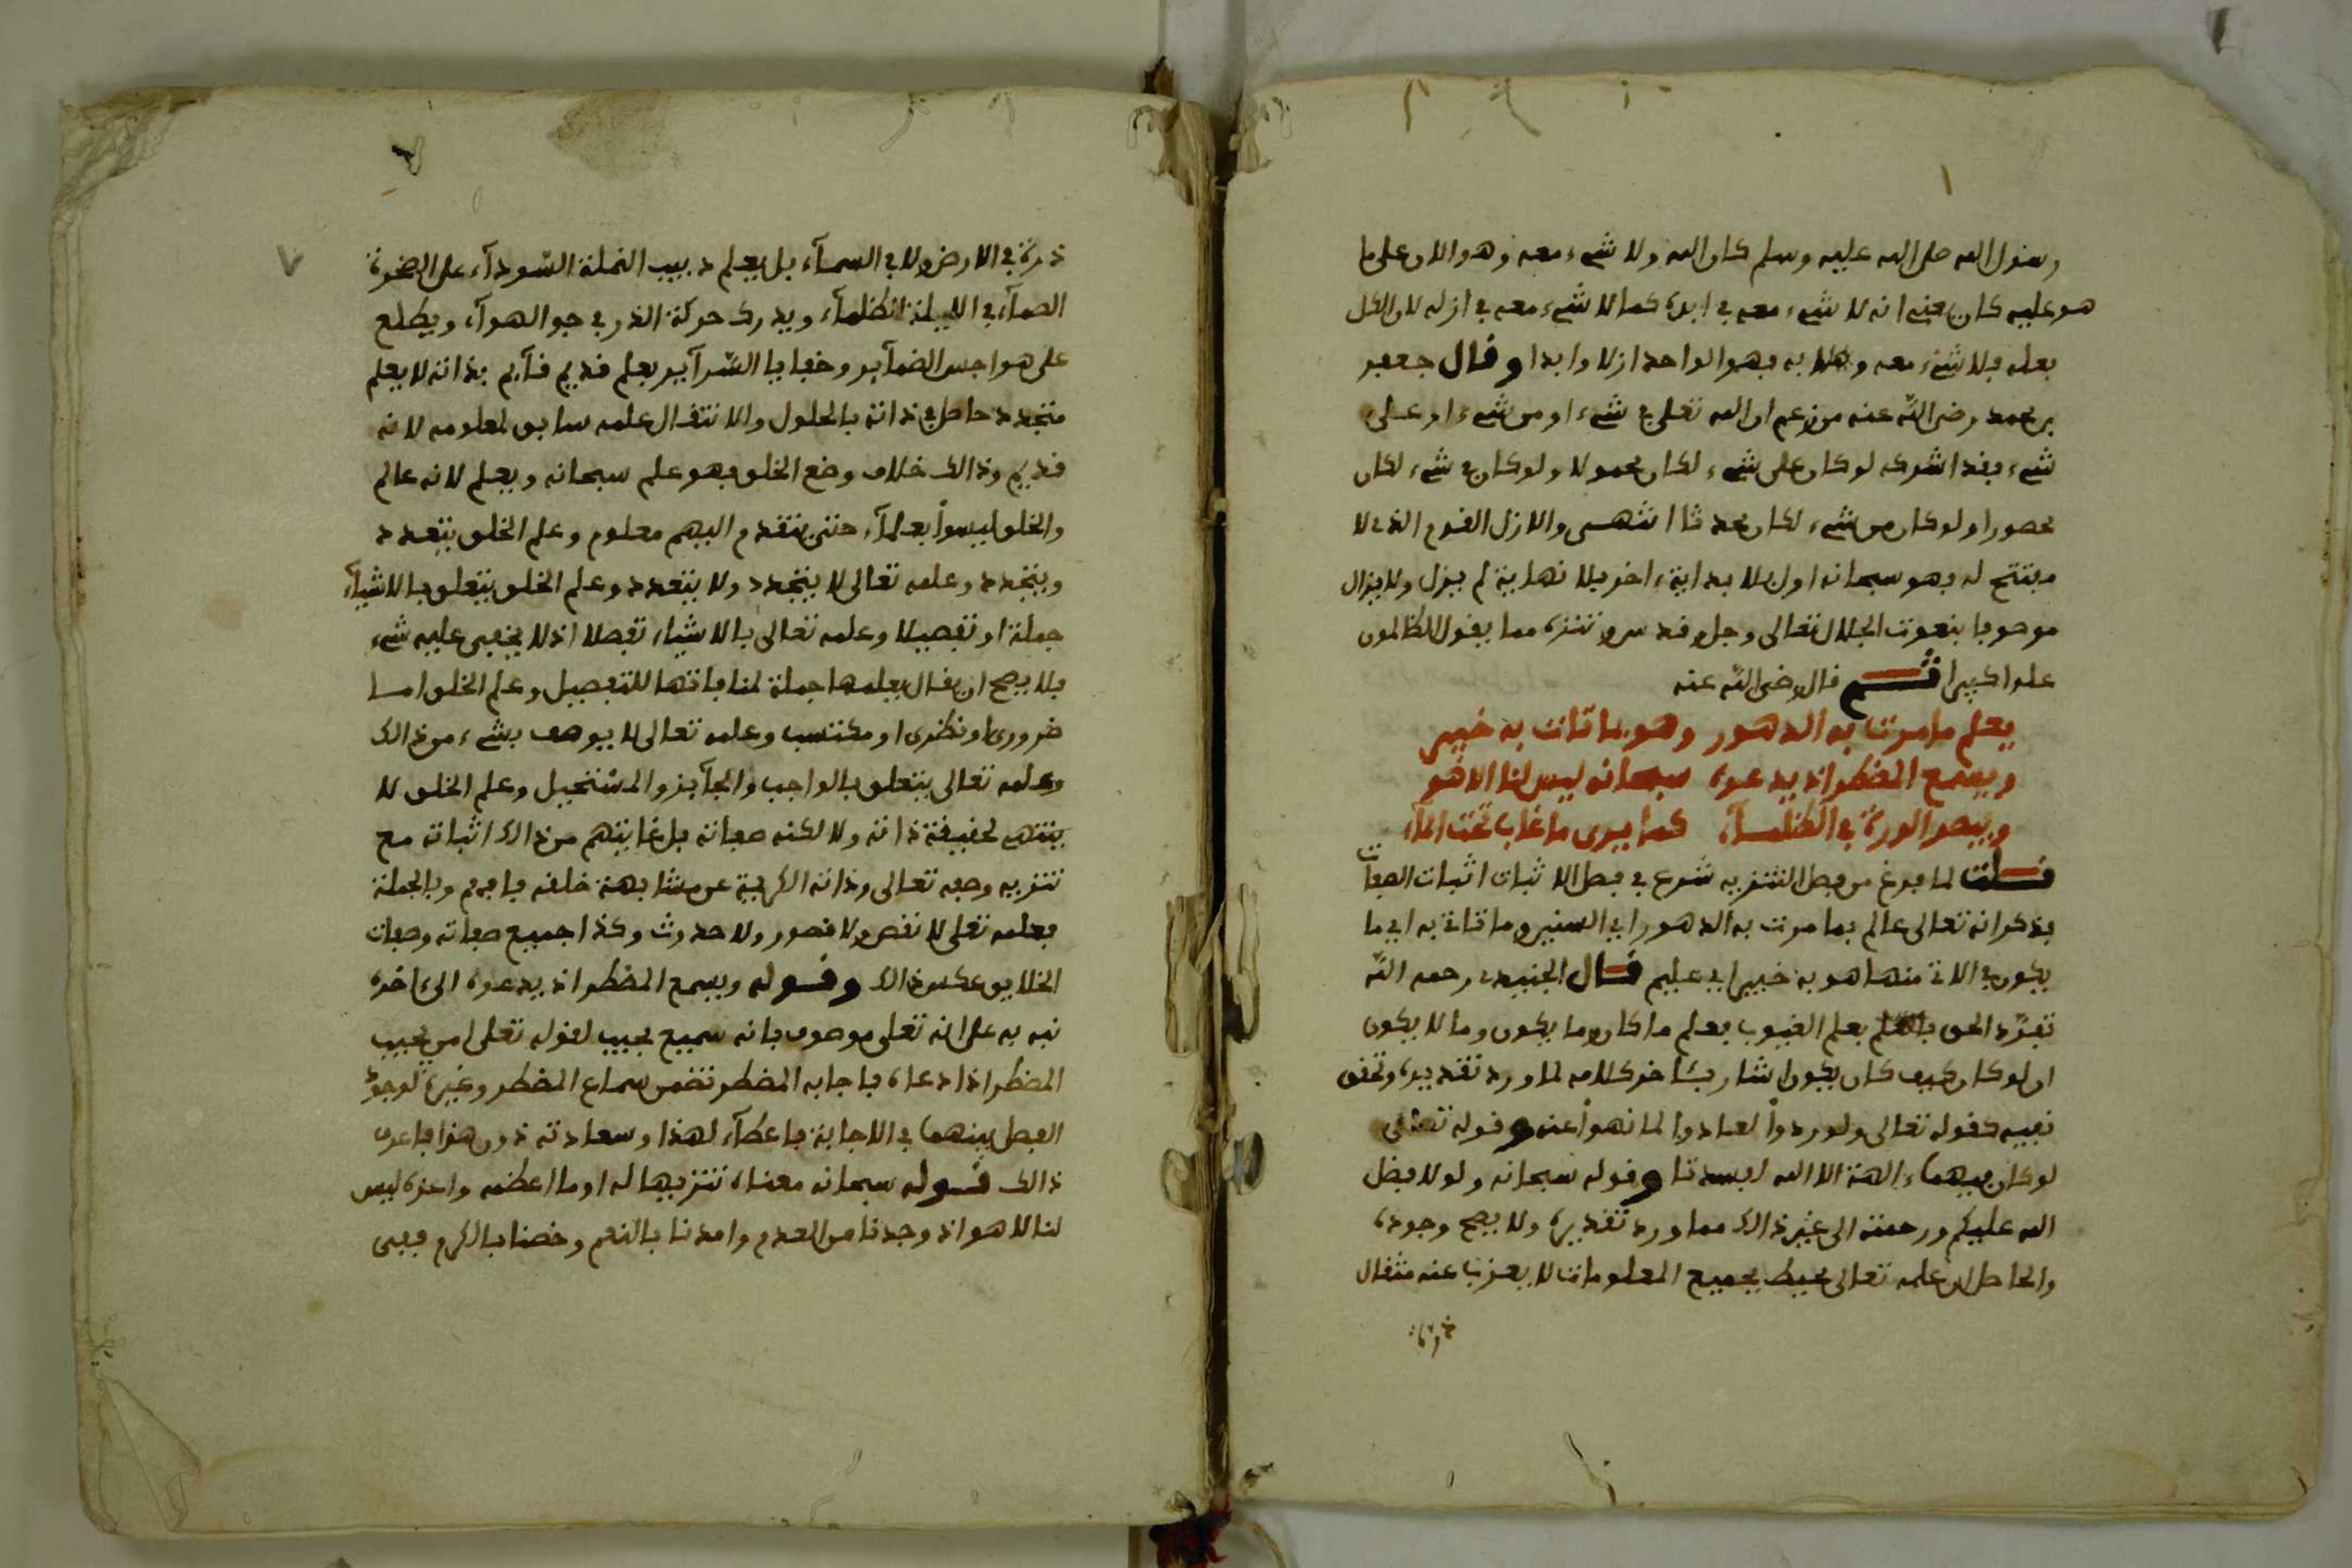 رسول الله صلى الله عليه وسلم كان الله ولا شيء معه وهو الان على ما
هو عليه كان يعني انه لا شيء معه في ابده كما لا شيء معه في ازله لان الكل
بعله فلا شيء معه به فهو الواحد ازلا وابدا وقال جعفر
بن محمد رضي الله عنه من زعم ان الله تعلى في شيء او من شيء او على
شيء فقد اشرك لو كان على شيء لكان محمولا ولو كان في شيء لكان
محصورا ولو كان من شيء لكان محدثا انتهى والازل القدم الذي لا
مفتتح له فهو سبحانه اول بلا بداية ءاخر بلا نهاية لم يزل ولا يزال
موصوفا بنعوت الجلال تعالى وجل وقدس وتنزه مما يقول الظالمون
علوا كبيرا ثم قال رضي الله عنه
يعلم ما مرت به الدهور وهو بما تات به خبير
ويسمع المضطر اذ يدعوه سبحانه ليس لنا الا هو
ويبصر الذرة في الظلماء كما يرى ما غاب تحت الماء
قلت لما فرغ من فصل التنزيه شرع في فصل الاثبات اثبات الصفات
فذكر انه تعالى عالم بما مرت به الدهور اي السنين وما تات به اي ما
يكون في الاتي منها هو به خبير اي عليم قال الجنيد رحمه الله
تفرد الحق بعلم الغيوب فعلم ما كان وما يكون وما لا يكون
ان لو كان كيف كان يكون اشار بئاخر كلامه لما ورد تقديره وتحقق
نفيه كقوله تعالى ولو ردوا لعادوا لما نهوا عنه وقوله تعالى
لو كان فيهما ءالهة الا الله لفسدتا وقوله سبحانه ولولا فضل
الله عليكم ورحمته الى غير ذالك مما ورد تقديره ولا يصح وجوده
والحاصل ان علمه تعالى محيط بجميع المعلومات لا يعزب عنه مثقال
ذرة
٧
ذرة في الارض ولا في السماء بل يعلم دبيب النملة السوداء على الصخرة
الصماء في الليلة الظلماء ويدرك حركة الذر في جو الهواء ويطلع
على هواجس الضماير وخفايا السراير بعلم قديم قايم بذاته لا بعلم
متجدد حاصل في ذاته بالحلول والانتقال علمه سابق لمعلومه لانه
قديم وذالك خلاف وضع الخلق فهو علم سبحانه ويعلم لانه عالم
والخلق ليسوا بعلماء حتى يتقدم اليهم معلوم وعلم الخلق يتعدد
ويتجدد وعلمه تعالى لا يتجدد ولا يتعدد وعلم الخلق يتعلق بالاشياء
جملة او تفصيلا وعلمه تعالى بالاشياء تفصلا اذ لا يخفى عليه شيء
فلا يصح ان يقال يعلمها جملة لمنافاتها للتفصيل وعلم الخلق اما
ضروري او نظري او مكتسب وعلمه تعالى لا يوصف بشيء من ذالك
وعلمه تعالى يتعلق بالواجب والجايز والمستحيل وعلم الخلق لا
ينتهي لحقيقة ذاته ولا لكنه صفاته بل غايتهم من ذالك اثباته مع
تنزيه وصفه تعالى وذاته الكريمة عن مشابهة خلقه فافهم وبالجملة
فعلمه تعلى لا نقص ولا قصور ولا حدوث وكذا جميع صفاته وصفات
الخلايق عكس ذالك وقوله ويسمع المضطر اذ يدعوه الى ءاخره
نبه به على انه تعلى موصوف بانه سميع مجيب لقوله تعلى امن يجيب
المضطر اذا دعاه فاجابه المضطر تضمن سماع المضطر وغيره لوجود
الفصل بينهما في الاجابة فاعطاء لهذا وسعادته دون هذا فاعرف
ذالك قوله سبحانه معناه تنزيها له او ما اعظمه واعزه ليس
لنا الا هو اذ وجدنا من العدم وامدنا بالنعم وخصنا بالكرم ففي